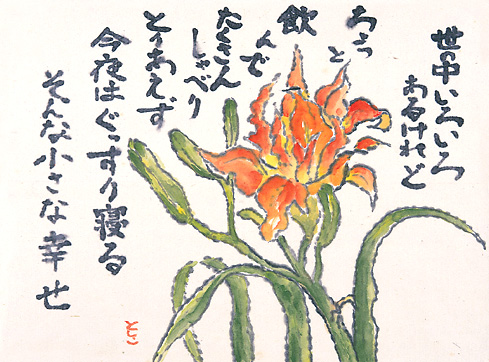 世の中いろいろ
あるけれど
ちょっと
飲んで
たくさん
しゃべり
とりあえず
今夜はぐっすり寝る
そんな小さな幸せ
としこ